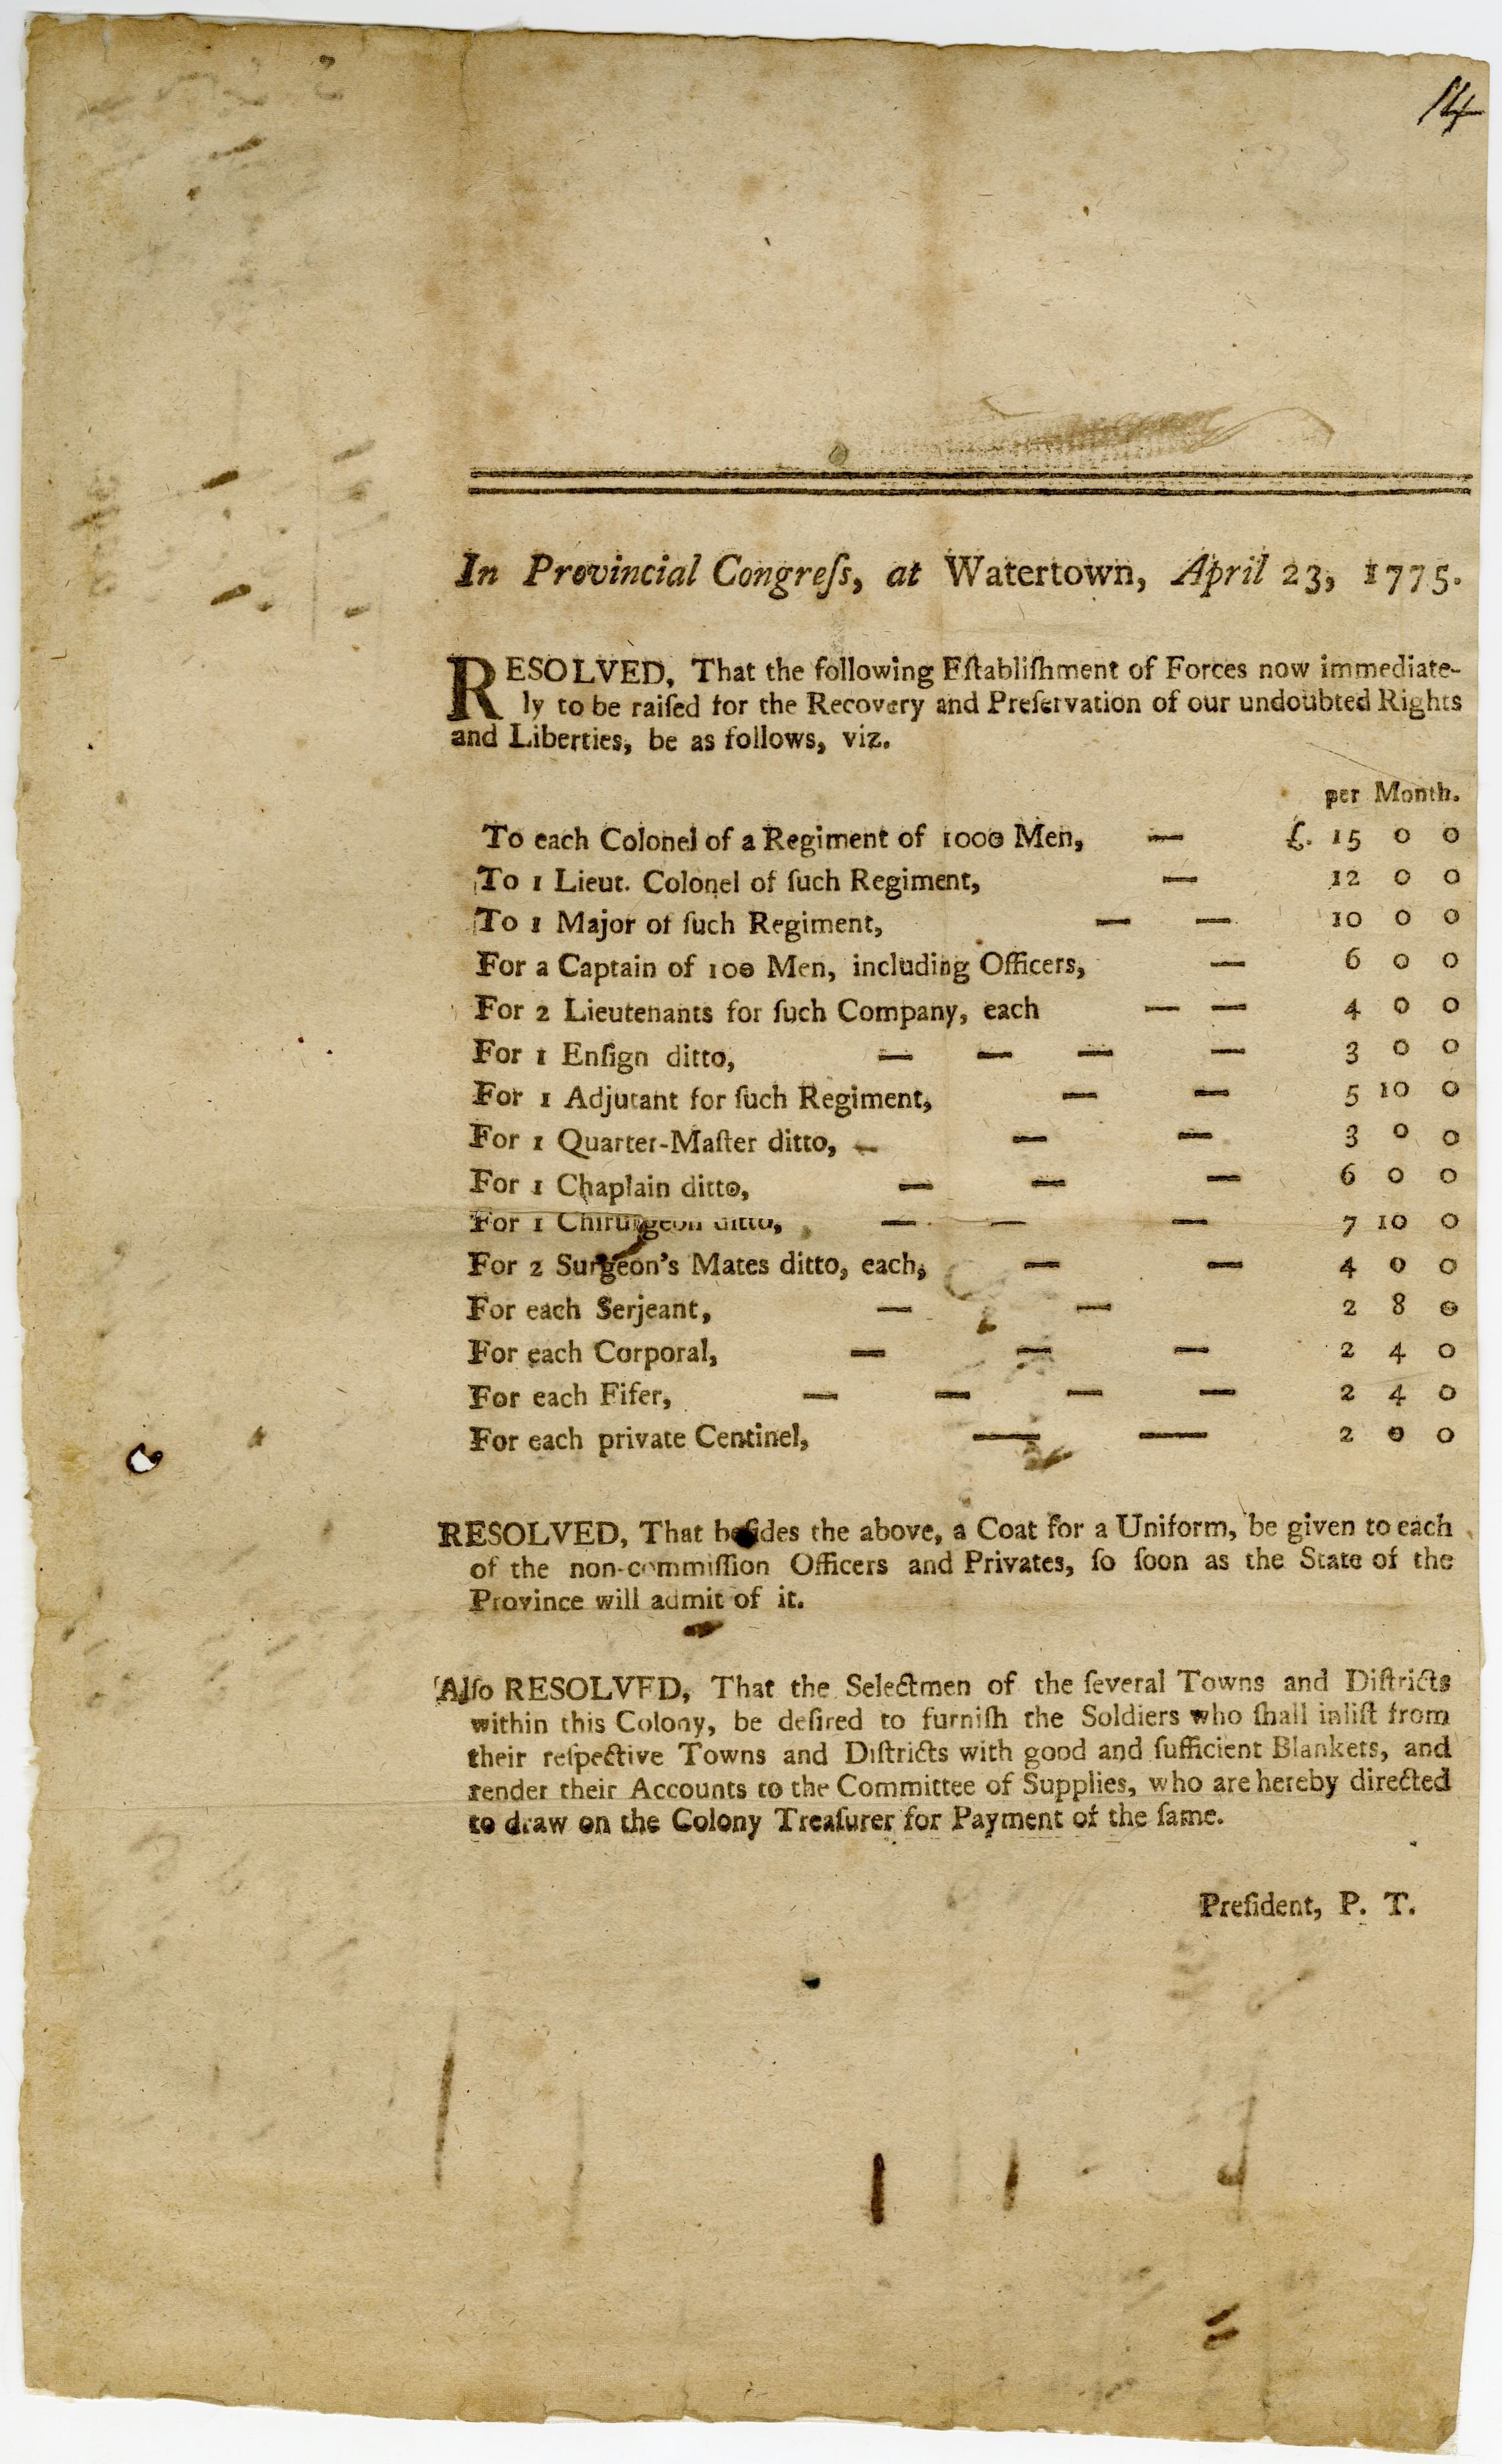 14
In Provincial Congreſs, at Watertown, April 23, 1775.
RESOLVED, That the following Eſtabliſhment of Forces now immediate-
ly to be raiſed for the Recovery and Preſervation of our undoubted Rights
and Liberties, be as follows, viz.
per Month.
To each Colonel of a Regiment of 1000 Men, — £. 15 0 0
To 1 Lieut. Colonel of ſuch Regiment, — 12 0 0
To 1 Major of ſuch Regiment, — — 10 0 0
For a Captain of 100 Men, including Officers, — 6 0 0
For 2 Lieutenants for ſuch Company, each — — 4 0 0
For 1 Enſign ditto, — — — — 3 0 0
For 1 Adjutant for ſuch Regiment, — — 5 10 0
For 1 Quarter-Maſter ditto, — — — 3 0 0
For 1 Chaplain ditto, — — — 6 0 0
For 1 Chirurgeon ditto, — — — 7 10 0
For 2 Surgeon's Mates ditto, each, — — 4 0 0
For each Serjeant, — — 2 8 0
For each Corporal, — — — 2 4 0
For each Fifer, — — — — 2 4 0
For each private Centinel, — — 2 0 0
RESOLVED, That beſides the above, a Coat for a Uniform, be given to each
of the non-commiſſion Officers and Privates, ſo ſoon as the State of the
Province will admit of it.
Alſo RESOLVED, That the Selectmen of the ſeveral Towns and Diſtricts
within this Colony, be deſired to furniſh the Soldiers who ſhall inliſt from
their reſpective Towns and Diſtricts with good and ſufficient Blankets, and
render their Accounts to the Committee of Supplies, who are hereby directed
to draw on the Colony Treaſurer for Payment of the ſame.
Preſident, P. T.